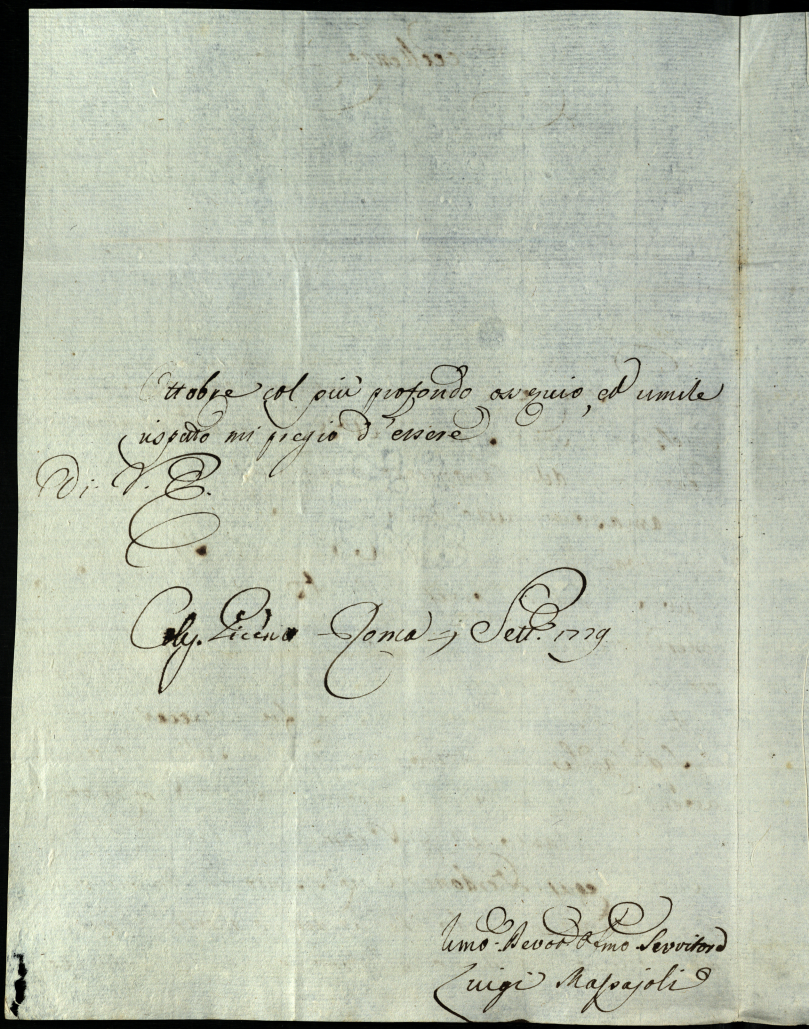 Ottobre col più profondo ossequio, ed umile
rispetto mi pregio d'essere
Di V. E.
Roma 5 Sett.e 1779
Umo. Devot. Obmo Servitore
Luigi Massajoli